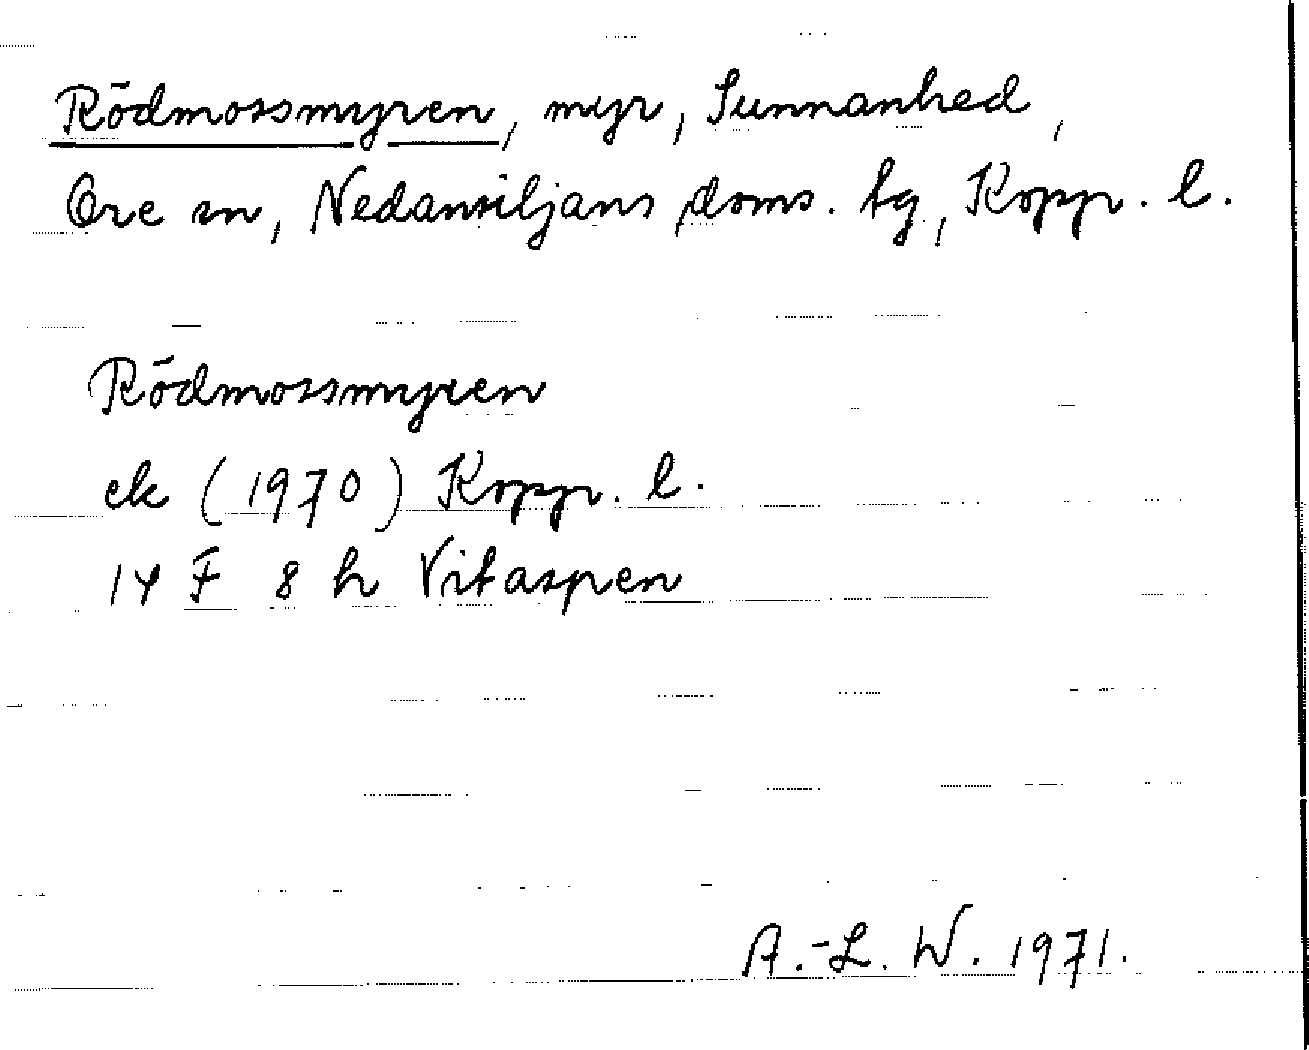 Rödmossmyren, myr, Sunnanhed,
Ore sn, Nedansiljans doms. tg, Kopp. l.
Rödmossmyren
ek (1970) Kopp. l.
14 F 8 h Vitaspen
A.-L. W. 1971.